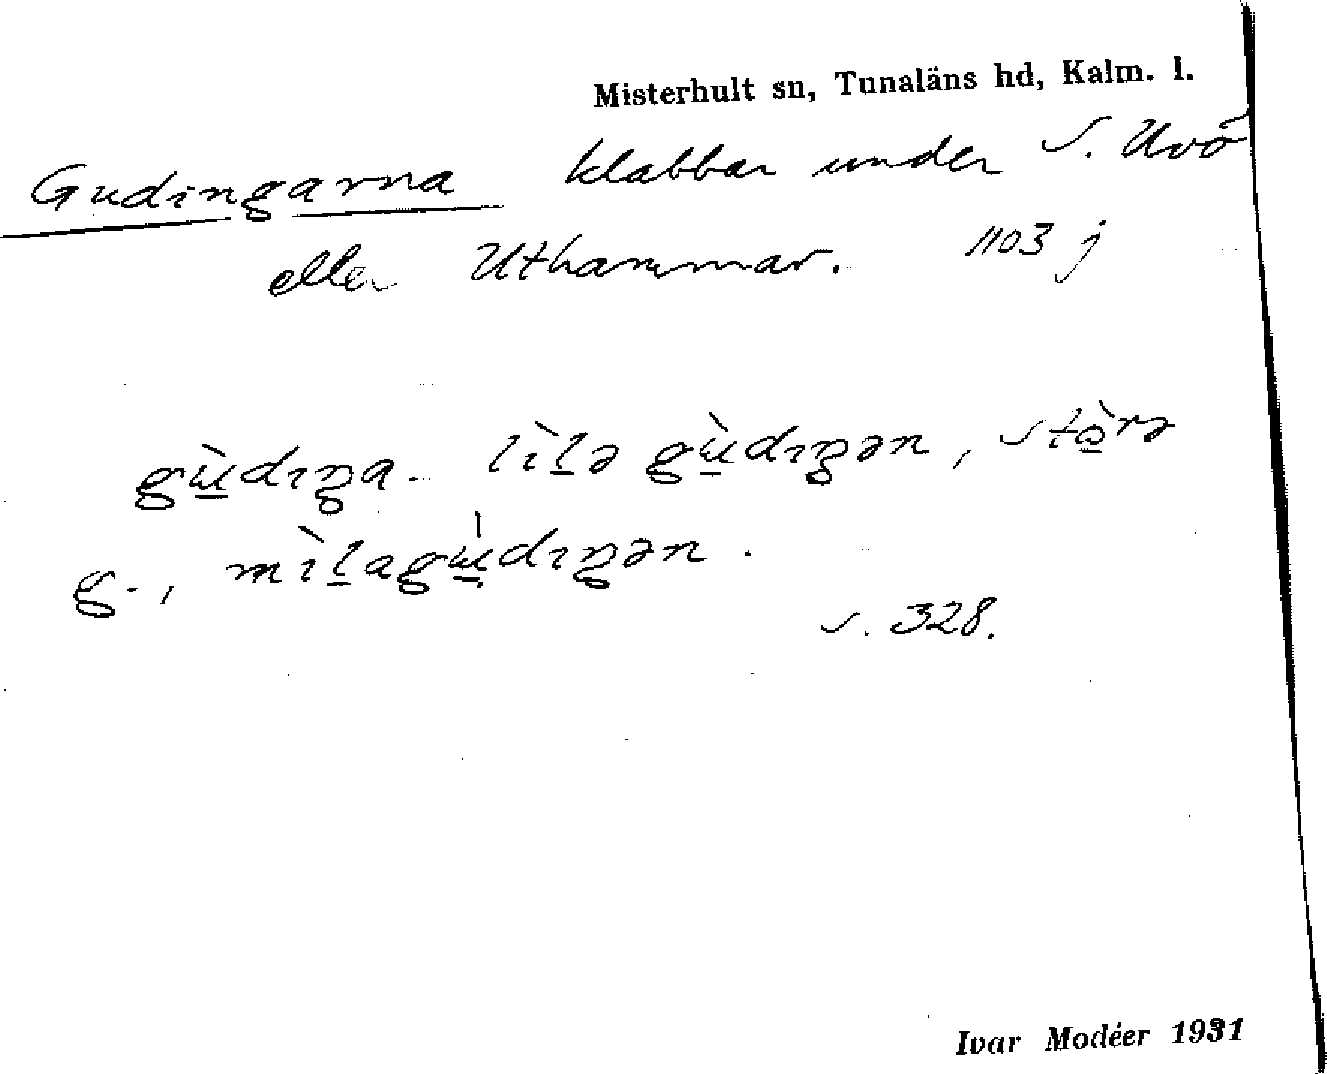 Misterhult sn, Tunaläns hd, Kalm. l.
Gudingarna klabbar under S. Uvö
eller Uthammar. 1103 j
gù̱dıŋa. lìḻə gù̱dıŋən, stò̱rə
g-, mìḻagù̱dıŋən.
s. 328.
Ivar Modéer 1931